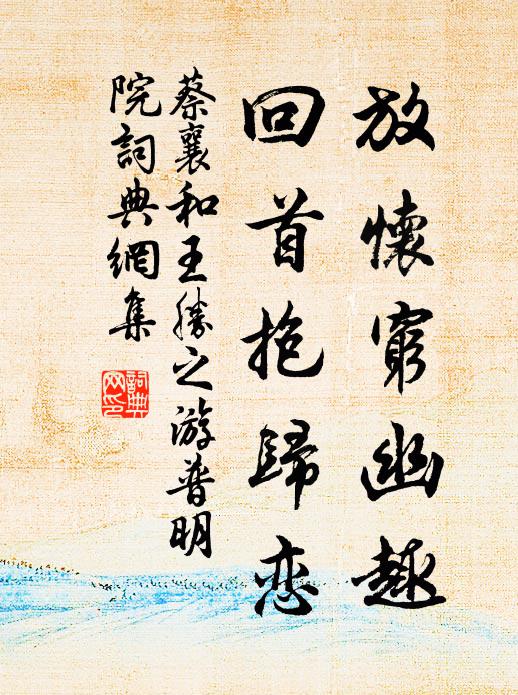 放懷窮幽趣
回首抱歸恋
蔡襄和王勝之游普明
院詞典網集
詞典
网印